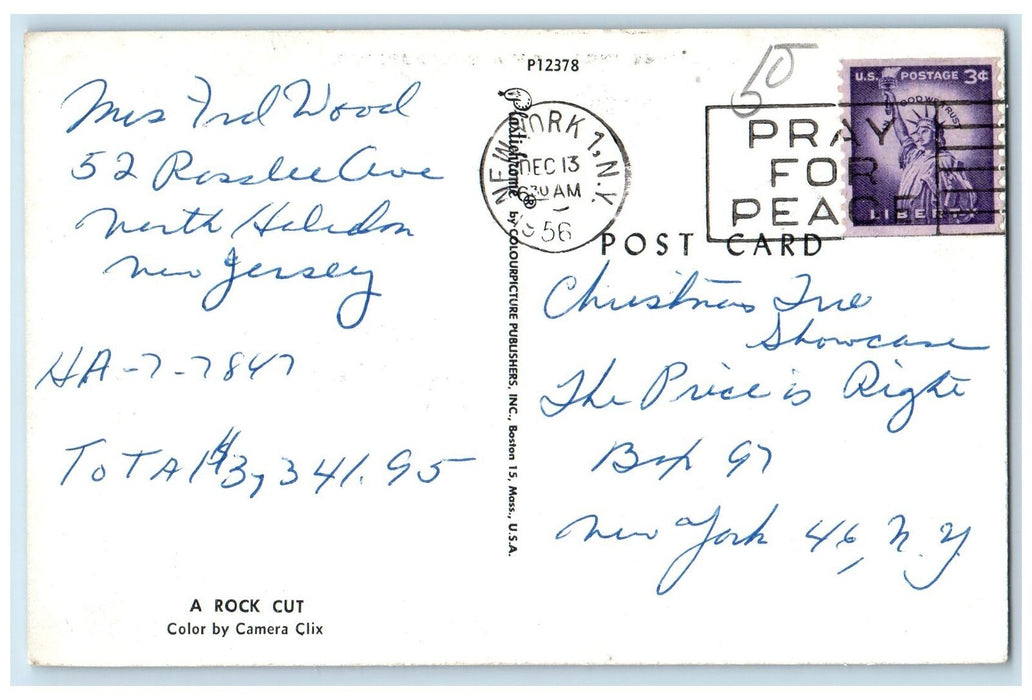 P12378
50
U.S. POSTAGE 3¢
IN GOD WE TRUST
LIBERTY
NEW YORK 1, N.Y.
DEC 13
630 AM
1956
PRAY
FOR
PEACE
POST CARD
Mrs Fred Wood
52 Rosslee Ave
North Haledon
New Jersey
HA-7-7847
TOTAL $3,341.95
Plastichrome ® by COLOURPICTURE PUBLISHERS, INC., Boston 15, Mass., U.S.A.
Christmas Tree
Showcase
The Price is Right
Box 97
New York 46, N.Y.
A ROCK CUT
Color by Camera Clix